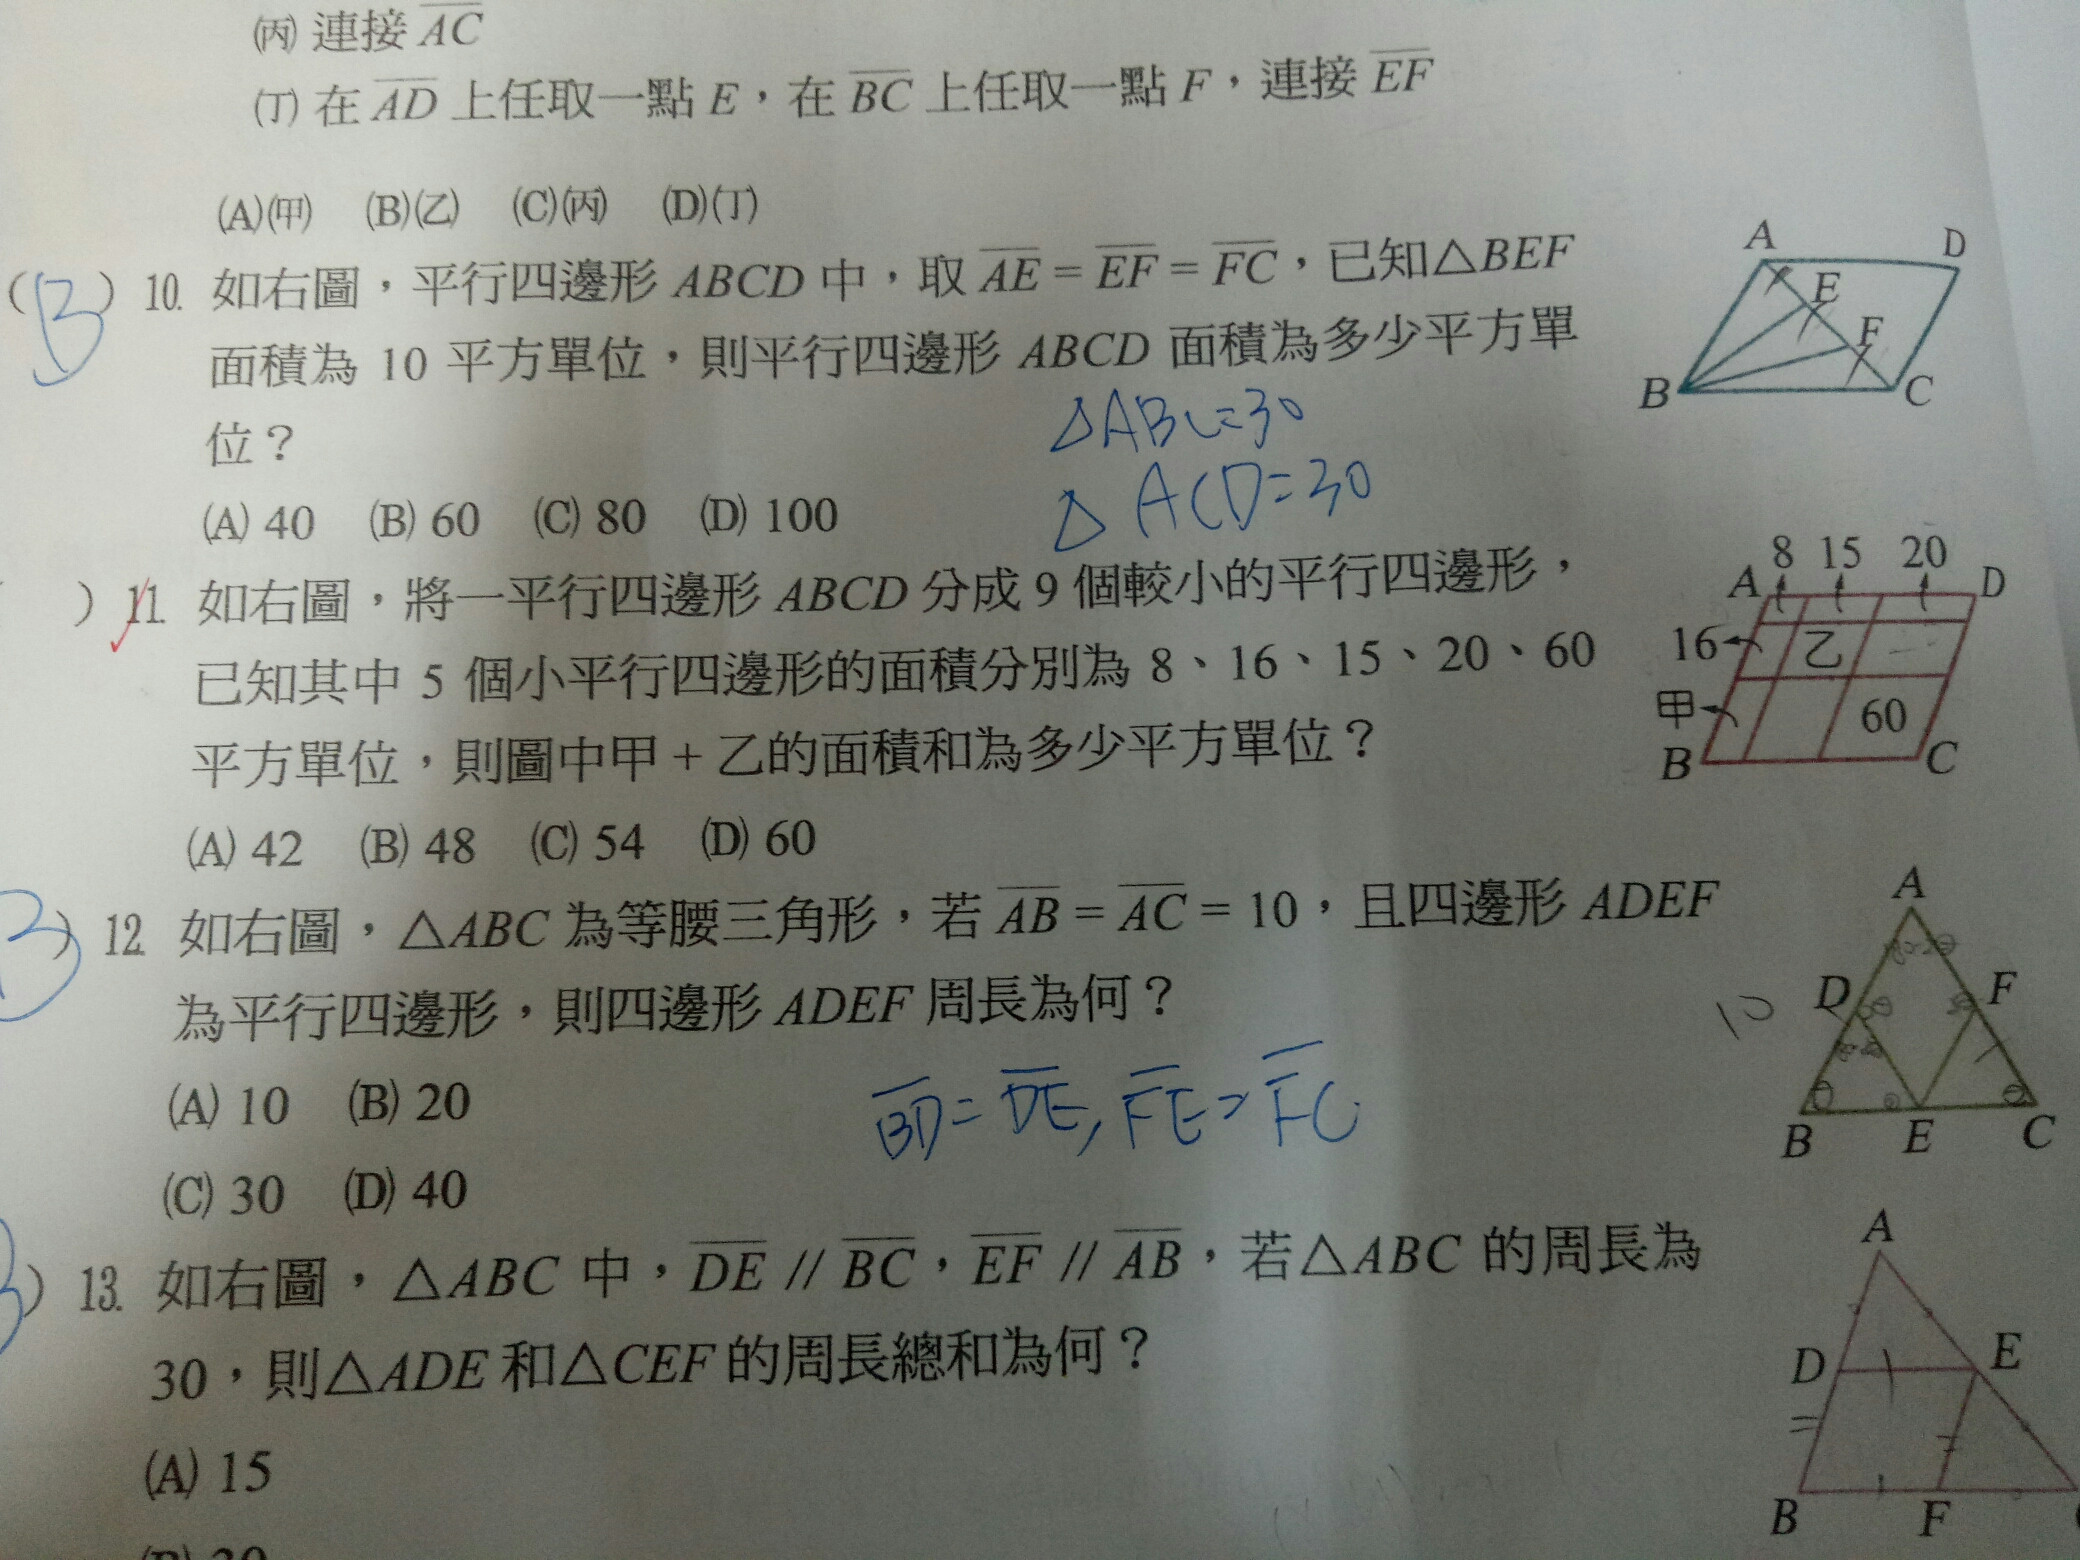 (丙) 連接 AC
(丁) 在 AD 上任取一點 E，在 BC 上任取一點 F，連接 EF
(A)(甲) (B)(乙) (C)(丙) (D)(丁)
(B) 10. 如右圖，平行四邊形 ABCD 中，取 AE = EF = FC，已知△BEF
面積為 10 平方單位，則平行四邊形 ABCD 面積為多少平方單
位？
△ABC=30
△ACD=30
(A) 40 (B) 60 (C) 80 (D) 100
A D E F B C
) 11. 如右圖，將一平行四邊形 ABCD 分成 9 個較小的平行四邊形，
已知其中 5 個小平行四邊形的面積分別為 8、16、15、20、60
平方單位，則圖中甲 + 乙的面積和為多少平方單位？
(A) 42 (B) 48 (C) 54 (D) 60
8 15 20
A D
16 乙
甲 60
B C
B) 12. 如右圖，△ABC 為等腰三角形，若 AB = AC = 10，且四邊形 ADEF
為平行四邊形，則四邊形 ADEF 周長為何？
(A) 10 (B) 20
BD=DE, FE=FC
(C) 30 (D) 40
A
10 D F
B E C
) 13. 如右圖，△ABC 中，DE // BC，EF // AB，若△ABC 的周長為
30，則△ADE 和△CEF 的周長總和為何？
(A) 15
A
D E
B F